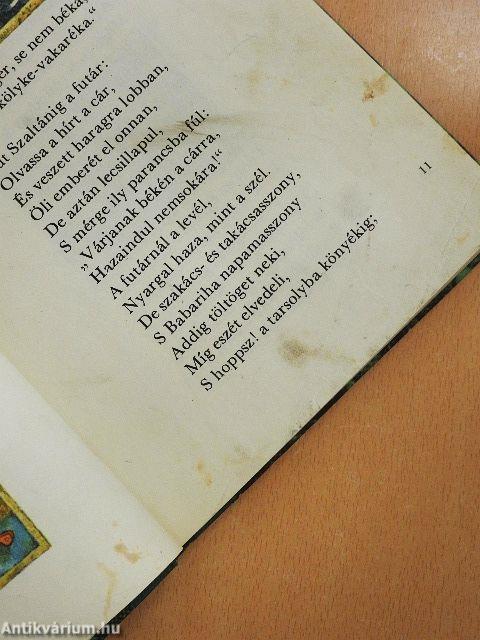 se nem béka,
kölyke-vakaréka."
Szaltánig a futár:
Olvassa a hírt a cár,
És veszett haragra lobban,
Öli emberét el onnan,
De aztán lecsillapul,
S mérge ily parancsba fúl:
„Várjanak békén a cárra,
Hazaindul nemsokára!"
A futárnál a levél,
Nyargal haza, mint a szél.
De szakács- és takácsasszony,
S Babariha napamasszony
Addig töltöget neki,
Míg eszét elvedeli,
S hoppsz! a tarsolyba könyékig;
11
Antikvárium.hu